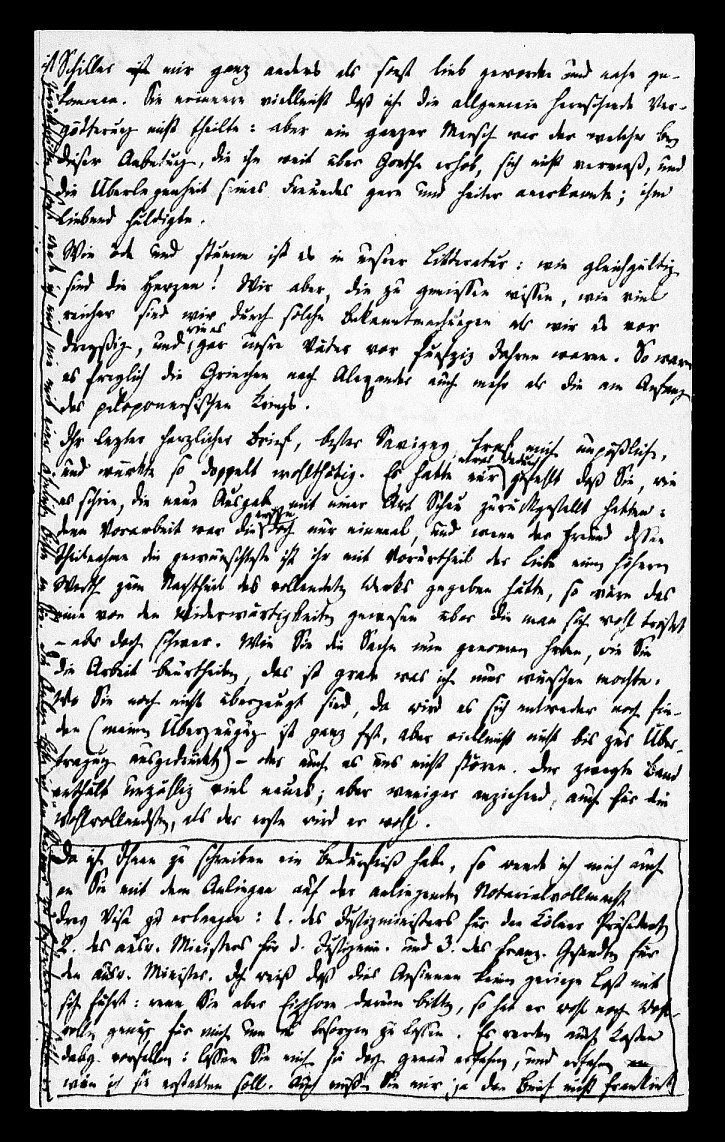 Schiller ist mir ganz anders als sonst lieb geworden und nahe ge-
kommen. Sie erinnern vielleicht daß ich die allgemein herrschende Ver-
götterung nicht theilte: aber ein ganzer Mensch war der welcher bey
dieser Anbetung, die ihn weit über Goethe erhob, sich nicht vermaß, und
die Überlegenheit seines Freundes gern und heiter anerkannte; ihm
liebend huldigte.
Wie öde und stumm ist es in unsrer Litteratur: wie gleichgültig
sind die Herzen! Wir aber, die zu genießen wissen, wie viel
reicher sind wir durch solche Bekanntmachungen als wir es vor
dreyßig, und gar unsre Väter vor funfzig Jahren waren. So waren
es freylich die Griechen nach Alexander auch mehr als die am Anfang
des peloponnesischen Kriegs.
Ihr lezter herzlicher Brief, bester Savigny, traf mich unpäßlich,
und würkte so doppelt wohlthätig. Es hatte mir gefehlt daß Sie, wie
es schien, die neue Ausgabe mit einer Art Scheu zurückgestellt hatten:
denn Vorarbeit war die erste doch nur einmal, und wenn der Freund dessen
Theilnahme die gewünschteste ist ihr mit Vorurtheil der Liebe einen höhern
Werth zum Nachtheil des vollendeten Werks gegeben hätte, so wäre das
eine von den Widerwärtigkeiten gewesen über die man sich wohl tröstet
– aber doch schwer. Wie Sie die Sache nun genommen haben, wie Sie
die Arbeit beurtheilen, das ist grade was ich nur wünschen mochte.
Wo Sie noch nicht überzeugt sind, da wird es sich entweder noch fin-
den (meine Überzeugung ist ganz fest, aber vielleicht nicht bis zur Über-
tragung ausgedeutet) – oder auch es uns nicht stören. Der zweyte Band
enthält unzählig viel neues; aber weniger anziehend, auch für die
wohlwollendsten, als der erste wird er wohl.
Da ich Ihnen zu schreiben ein Bedürfniß habe, so wende ich mich auch
an Sie mit dem Anliegen auf der anliegenden Notarialvollmacht
drey Visa zu erlangen: 1. des Justizministers für den Kölner Präsidenten
2. des ausw. Ministers für d. Justizmin. und 3. des franz. Gesandten für
den ausw. Minister. Ich weiß daß dies Ansinnen keine geringe Last mit
sich führt: wenn Sie aber Eichhorn darum bitten, so hat er wohl noch Wohl-
wollen genug für mich um es besorgen zu lassen. Es werden auch Kosten
dabey vorfallen: lassen Sie mich sie doch genau erfahren, und
wem ich sie erstatten soll. Auch müssen Sie mir ja den Brief nicht frankiren